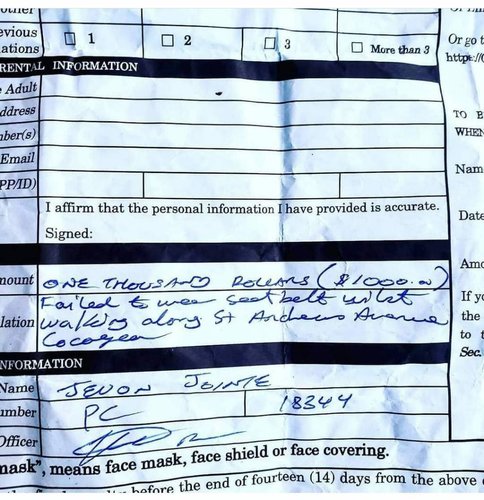 other
evious
ations 1 2 3 More than 3
Or go t
https://
RENTAL INFORMATION
e Adult
ddress
TO B
ber(s)
WHEN
Email
Nam
PP/ID)
I affirm that the personal information I have provided is accurate.
Date
Signed:
Amo
mount ONE THOUSAND DOLLARS ($1000.00)
If yo
Failed to wear seatbelt wilst
the
lation walking along St Andrews Avenue
to t
Cocoyea
Sec.
NFORMATION
Name JEVON JOINTE
umber PC 18344
Officer
mask", means face mask, face shield or face covering.
before the end of fourteen (14) days from the above d